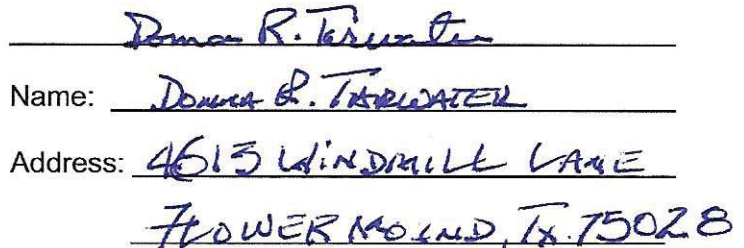 Donna R. Tarwater
Name: Donna R. TARWATER
Address: 4613 WINDMILL LANE
FLOWER MOUND, TX. 75028